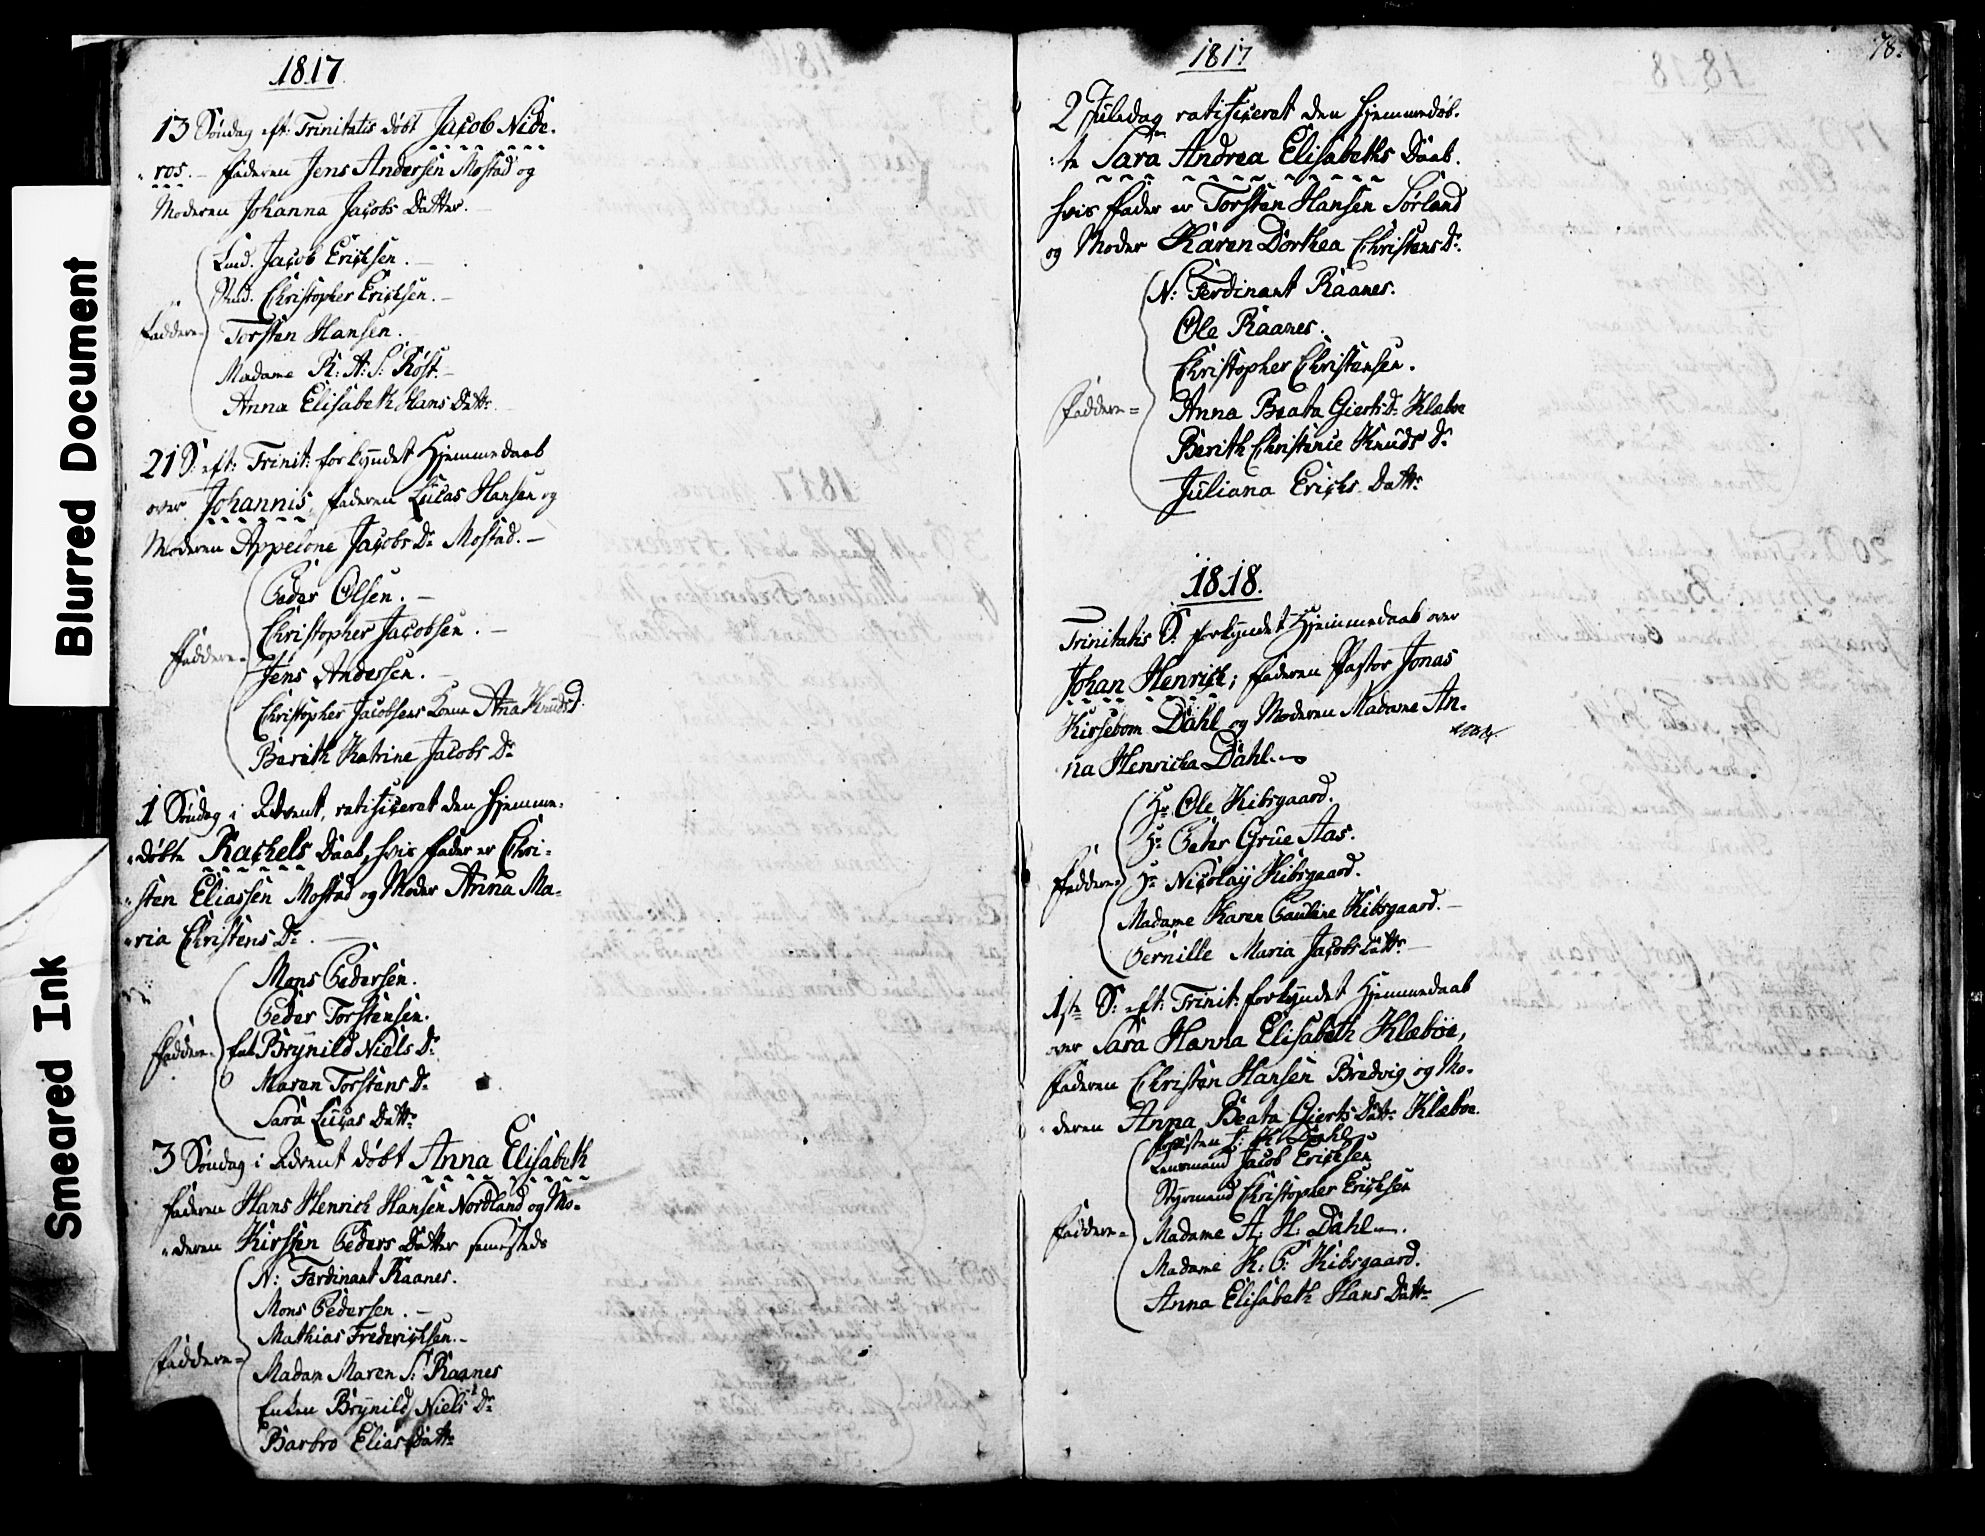 Blurred Document
Smeared Ink
1817.
13 Søndag eft: Trinitatis døbt Jacob Nide-
ros. – Faderen Jens Andersen Mostad og
Moderen Johanna Jacobs Datter. –
Lind. Jacob Ericksen. –
Christopher Ericksen. –
Faddere= Torsten Hansen. –
Madame R: A: S: Røst. –
Anna Elisabeth Hans Dattr.
21 S: eft: Trinit: forkyndet Hjemmedaab
over Johannis, Faderen Lucas Hansen og
Moderen Appelone Jacobs Dr Mostad. –
Peder Olsen. –
Christopher Jacobsen. –
Faddere= Jens Andersen. –
Christopher Jacobsens Kone Ana Knuds d.
Bereth Katrine Jacobs Dr
1 Søndag i Advent, ratificeret den hjemme-
døbte Rachels Daab, hvis Fader er Chri-
sten Eliassen Mostad og Moder Anna Ma-
ria Christens Dr. –
Mons Pedersen.
Peder Torstensen.
Faddere= Brynild Niels Dr
Maren Torstens Dr
Sara Lucas Dattr
3 Søndag i Advent døbt Anna Elisabeth
Faderen Hans Henrich Hansen Nordland og Mo-
deren Kirsten Peders Datter sammesteds
N: Ferdinant Raanes.
Mons Pedersen. –
Mathias Frederichsen. –
Faddere= Madam Maren S: Raanes
Enken Brynild Niels Dr
Barbro Elias Dattr
1817
78.
2 Juledag ratificeret den hjemmedøb-
te Sara Andrea Elisabeths Daab.
hvis Fader er Torsten Hansen Sørland
og Moder Karen Dorthea Christens Dr.
N: Ferdinant Raanes.
Ole Raanes.
Christopher Christensen.
Faddere= Anna Beata Gierts Dr Klæboe
Berith Christence Knuds Dr
Juliana Erichs Dattr
1818.
Trinitatis S: forkyndet Hjemmedaab over
Johan Henrich; Faderen Pastor Jonas
Kirsebom Dahl og Moderen Madame An-
na Henricka Dahl. –
Hr Ole Kibsgaard.
Hr Peter Grüe Aas.
Faddere= Hr Nicolay Kibsgaard.
Madame Karen Pauline Kibsgaard. –
Pernille Maria Jacobs Dattr –
1ste S: eft: Trinit: forkyndet Hjemmedaab
over Sara Hanna Elisabeth Klæbøe,
Faderen Christen Hansen Bredvig og Mo-
deren Anna Beata Gierts Dattr Klæboe.
J: K: Dahl
Lensmand Jacob Ericksen
Styrmand Christopher Ericksen
Faddere= Madame A: H: Dahl –.
Madame K: P: Kibsgaard.
Anna Elisabeth Hans Dattr –